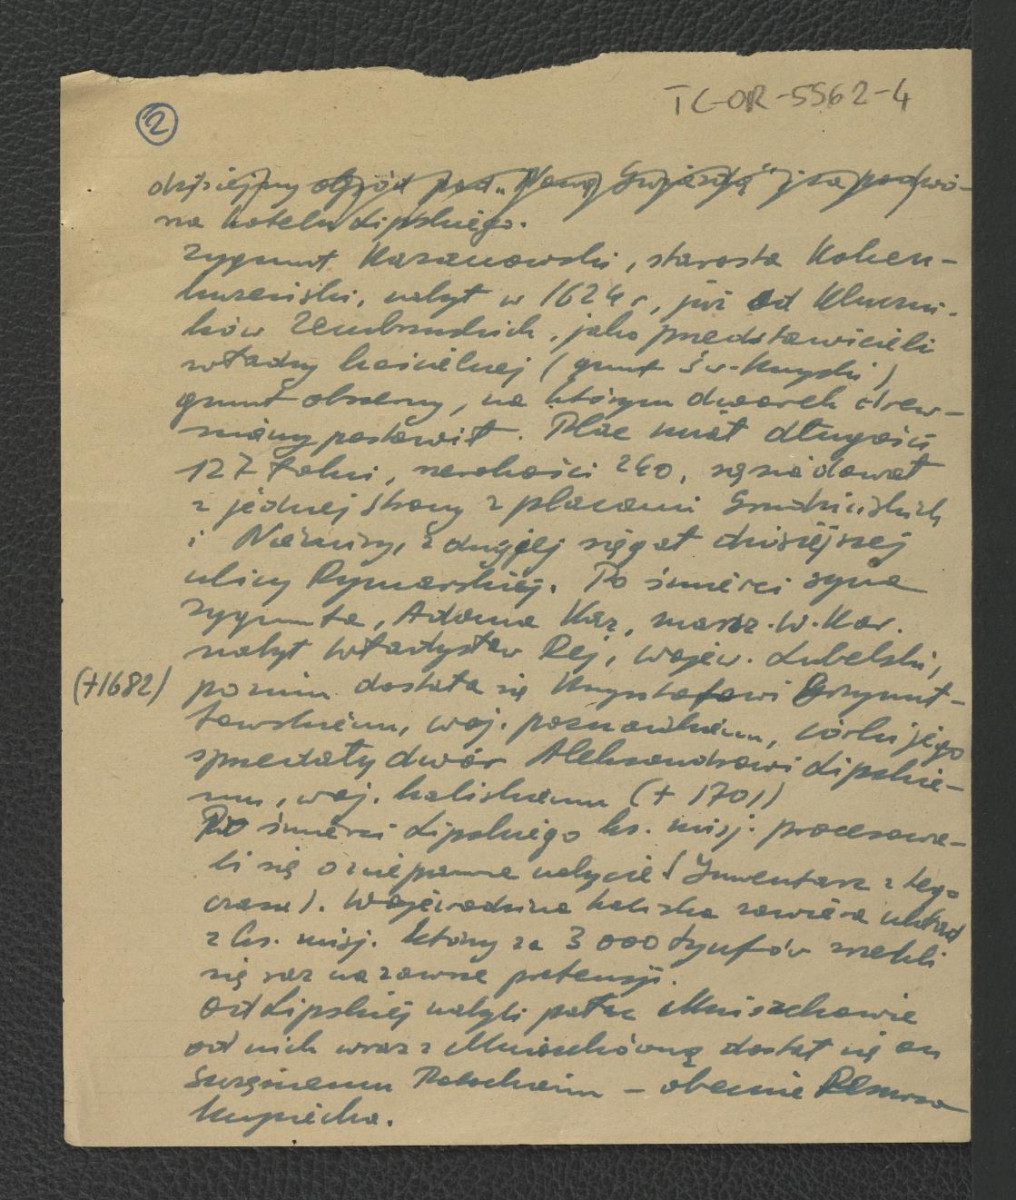 TC-OR-5562-4
2
dzisiejszy ogród pod „Nową Gwiazdą” i za podwó-
na hotelu Lipskiego.
Zygmunt Kazanowski, starosta Koken-
huzeński, nabył w 1624 r, już od Kluczni-
ków Zembrzuskich, jako przedstawicieli
władzy kościelnej (grunt Św-Krzyski)
grunt obszerny, na którym dworek drew-
niany postawił. Plac miał długości
127 łokci, szerokości 240, sąsiadował
z jednej strony z placami Grudzińskich
i Naémisy, z drugiej sięgał dzisiejszej
ulicy Rymarskiej. Po śmierci syna
Zygmunta, Adama Kaz, marsz. W. Kor.
nabył Władysław Rej, wojew. Lubelski,
(+1682) pozniu dostała się Krzysztofowi Grzymuł-
towskiemu, woj. poznańskiemu, córki jego
sprzedały dwór Aleksandrowi Lipskie-
mu, woj. kaliskiemu (+ 1701)
Po śmierci Lipskiego ks. misj. procesowa-
li się o nieprawne nabycie (Inwentarz z tego
czasu). Wojewodzina kaliska zawiera układ
z ks. misj. który za 3 000 tynfów zrzekli
się raz na zawsze pretensji.
Od Lipskiej nabyli pałac Mniszchowie
od nich wraz z Mniszchówną dostał się on
Szczęsnemu Potockiemu – obecnie Resursa
Kupiecka.